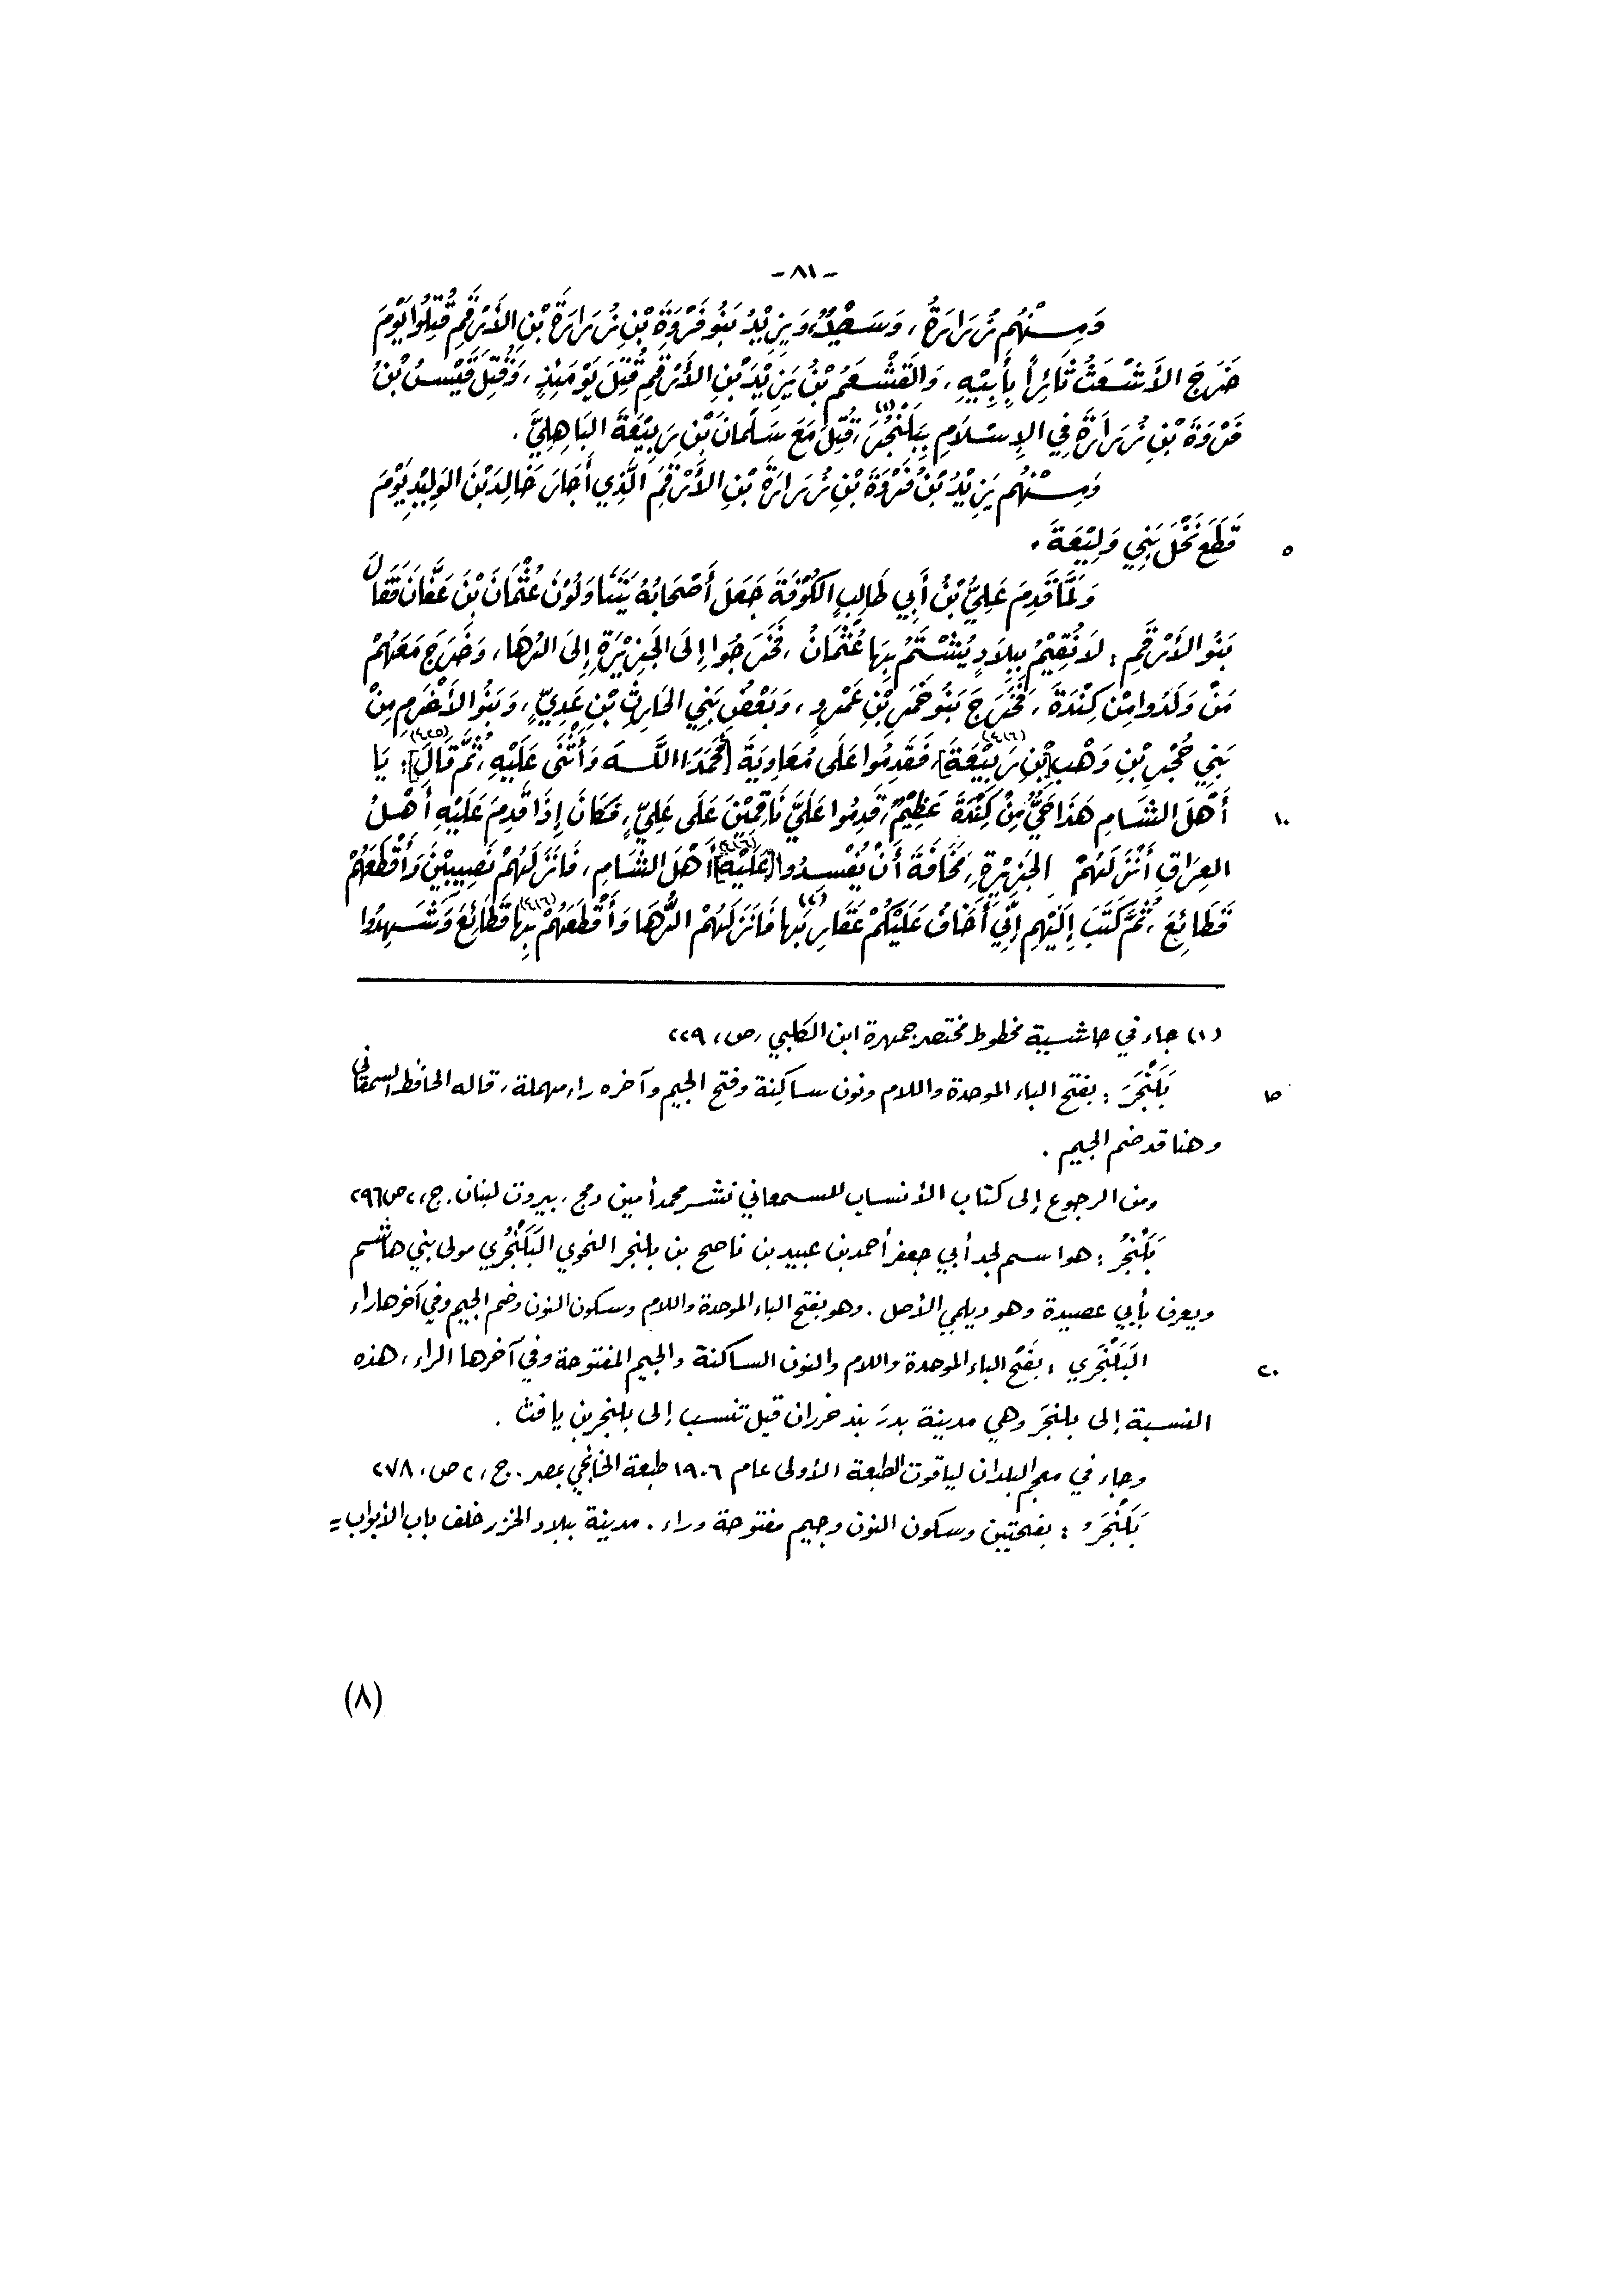 - ٨١ -
وَمِنْهُم زُرَارَةُ، وَسَعْدٌ، وَيَزِيْدُ بَنُو فَرْوَةَ بْنِ زُرَارَةَ بْنِ الأَرْقَمِ قُتِلُوا يَوْمَ
خَرَجَ الأَشْعَثُ ثَائِراً بِأَبِيْهِ، وَالقَشْعَمُ بْنُ يَزِيْدَ بْنِ الأَرْقَمِ قُتِلَ يَوْمَئِذٍ، وَقُتِلَ قَيْسُ بْنُ
فَرْوَةَ بْنِ زُرَارَةَ فِي الإِسْلَامِ بِبَلَنْجُرَ(١)، قُتِلَ مَعَ سَلْمَانَ بْنِ رَبِيْعَةَ البَاهِلِيَّ.
وَمِنْهُم يَزِيْدُ بْنُ فَرْوَةَ بْنِ زُرَارَةَ بْنِ الأَرْقَمِ الَّذِي أَجَارَ خَالِدَ بْنَ الوَلِيْدِ يَوْمَ
قَطَعَ نَخْلَ بَنِي وَلِيْعَةَ. ٥
وَلَمَّا قَدِمَ عَلِيُّ بْنُ أَبِي طَالِبٍ الكُوْفَةَ جَعَلَ أَصْحَابُهُ يَتَنَاوَلُوْنَ عُثْمَانَ بْنَ عَفَّانَ فَقَالَ
بَنُو الأَرْقَمِ: لَا نُقِيْمُ بِبِلَادٍ يُشْتَمُ بِهَا عُثْمَانُ، فَخَرَجُوا إِلَى الجَزِيْرَةِ إِلَى الرُّهَا، وَخَرَجَ مَعَهُمْ
مَنْ وَلَدُوا مِنْ كِنْدَةَ، فَخَرَجَ بَنُو خَمَرِ بْنِ عَمْرٍو، وَبَعْضُ بَنِي الحَارِثِ بْنِ عَدِيٍّ، وَبَنُو الأَخْرَمِ مِنْ
بَنِي حُجْرِ بْنِ وَهْبِ [بْنِ رَبِيْعَةَ](٤١٦)، فَقَدِمُوا عَلَى مُعَاوِيَةَ [فَحَمَدَ اللَّهَ وَأَثْنَى عَلَيْهِ، ثُمَّ قَالَ](٤٢٥): يَا
أَهْلَ الشَّامِ هَذَا حَيٌّ مِنْ كِنْدَةَ عَظِيْمٌ، قَدِمُوا عَلَيَّ نَاقِمِيْنَ عَلَى عَلِيٍّ، فَكَانَ إِذَا قَدِمَ عَلَيْهِ أَهْلُ ١٠
العِرَاقِ أَنْزَلَهُمْ الجَزِيْرَةَ، مَخَافَةَ أَنْ يُفْسِدُوا [عَلَيْهِ](٤١٦) أَهْلَ الشَّامِ، فَأَنْزَلَهُمْ نَصِيْبِيْنَ وَأَقْطَعَهُمْ
قَطَائِعَ، ثُمَّ كَتَبَ إِلَيْهِم إِنِّي أَخَافُ عَلَيْكُمْ عَقَارِبَهَا(٢) فَأَنْزَلَهُمْ الرُّهَا وَأَقْطَعَهُمْ بِهَا(٤١٦) قَطَائِعَ وَشَهِدُوا
(١) جاء في حاشية مخطوط مختصر جمهرة ابن الكلبي، ص، ٢٢٩
بَلَنْجَرَ: بفتح الباء الموحدة واللام ونون ساكنة وفتح الجيم وآخره راء مهملة، قاله الحافظ السمعاني ١٥
وهنا قد ضم الجيم.
ومن الرجوع إلى كتاب الأنساب للسمعاني نشر محمد أمين دمج، بيروت لبنان. ج، ٢ ص ٢٩٦
بَلَنْجُر: هو اسم لجد أبي جعفر أحمد بن عبيد بن ناصح بن بلنجر النحوي البَلَنْجُري مولى بني هاشم
ويعرف بأبي عصيدة وهو ديلمي الأصل. وهو بفتح الباء الموحدة واللام وسكون النون وضم الجيم وفي آخرها راء
البَلَنْجَري، بفَتْح الباء الموحدة واللام والنون الساكنة والجيم المفتوحة وفي آخرها الراء، هذه ٢٠
النسبة إلى بلنجَر وهي مدينة بدرَ بند خزران قيل تنسب إلى بلنجر بن يافث.
وجاء في معجم البلدان لياقوت الطبعة الأولى عام ١٩٠٦ طبعة الخانجي بمصر. ج، ٢ ص، ٢٧٨
بَلَنْجَرُ: بفتحتين وسكون النون وجيم مفتوحة وراء. مدينة ببلاد الخزر خلف باب الأبواب =
(٨)